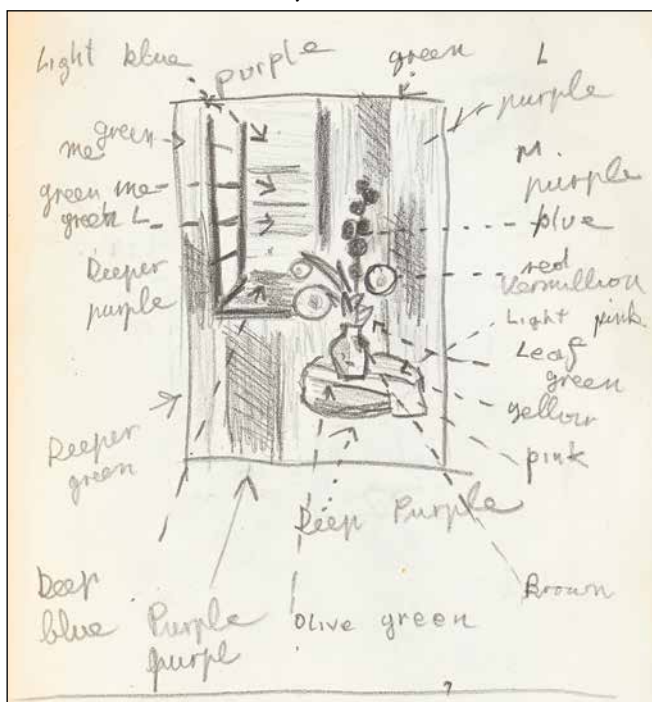 Light blue
purple
green
L
purple
green
me
M.
purple
green me
green L
blue
Deeper
purple
red
Vermillion
Light pink
Leaf
green
yellow
Deeper
green
pink
Deep Purple
Deep
blue
Purple
purpl
Olive green
Brown